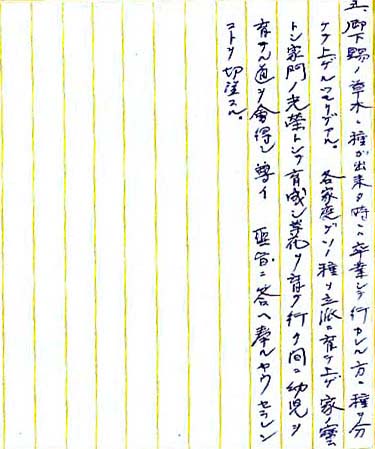 五、御下賜ノ草木ニ種ガ出来タ時ハ卒業シテ行カレル方ニ種ヲ分
ケテ上ゲルツモリデアル。各家庭デソノ種ヲ立派ニ育テ上ゲ家ノ宝
トシ家門ノ光栄トシテ育成シ草花ヲ育テ行ク間ニ幼児ヲ
育テル道ヲ会得シ尊イ 聖旨ニ答ヘ奉ルヤウセラレン
コトヲ切望スル。